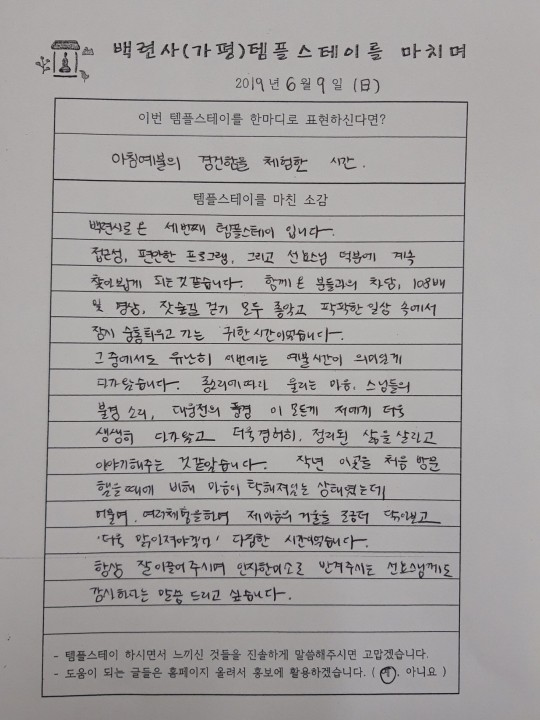 백련사(가평)템플스테이를 마치며
2019년 6월 9일 (日)
이번 템플스테이를 한마디로 표현하신다면?
아침예불의 경건함을 체험한 시간.
템플스테이를 마친 소감
백련사로온 세번째 템플스테이 입니다.
접근성, 편안한 프로그램, 그리고 선효스님 덕분에 계속
찾아뵙게 되는것 같습니다. 함께 온 분들과의 차담, 108배
및 명상, 잣숲길 걷기 모두 좋았고 팍팍한 일상 속에서
잠시 숨통틔우고 가는 귀한시간이었습니다.
그 중에서도 유난히 이번에는 예불시간이 의미있게
다가왔습니다. 종소리에따라 울리는 마음, 스님들의
불경 소리, 대웅전의 풍경 이 모든게 저에게 더욱
생생히 다가왔고 더욱 겸허히, 정리된 삶을 살라고
이야기해주는 것같았습니다. 작년 이곳을 처음 방문
했을때에 비해 마음이 탁해져있는 상태였는데
머물며, 여러체험을하며 제마음의 거울을 조금더 닦아보고
'더욱 맑아져야겠다' 다짐한 시간이었습니다.
항상 잘 이끌어주시며 인자한미소로 반겨주시는 선효스님께도
감사하다는 말씀 드리고 싶습니다.
- 템플스테이 하시면서 느끼신 것들을 진솔하게 말씀해주시면 고맙겠습니다.
- 도움이 되는 글들은 홈페이지 올려서 홍보에 활용하겠습니다. ( 예. 아니요 )